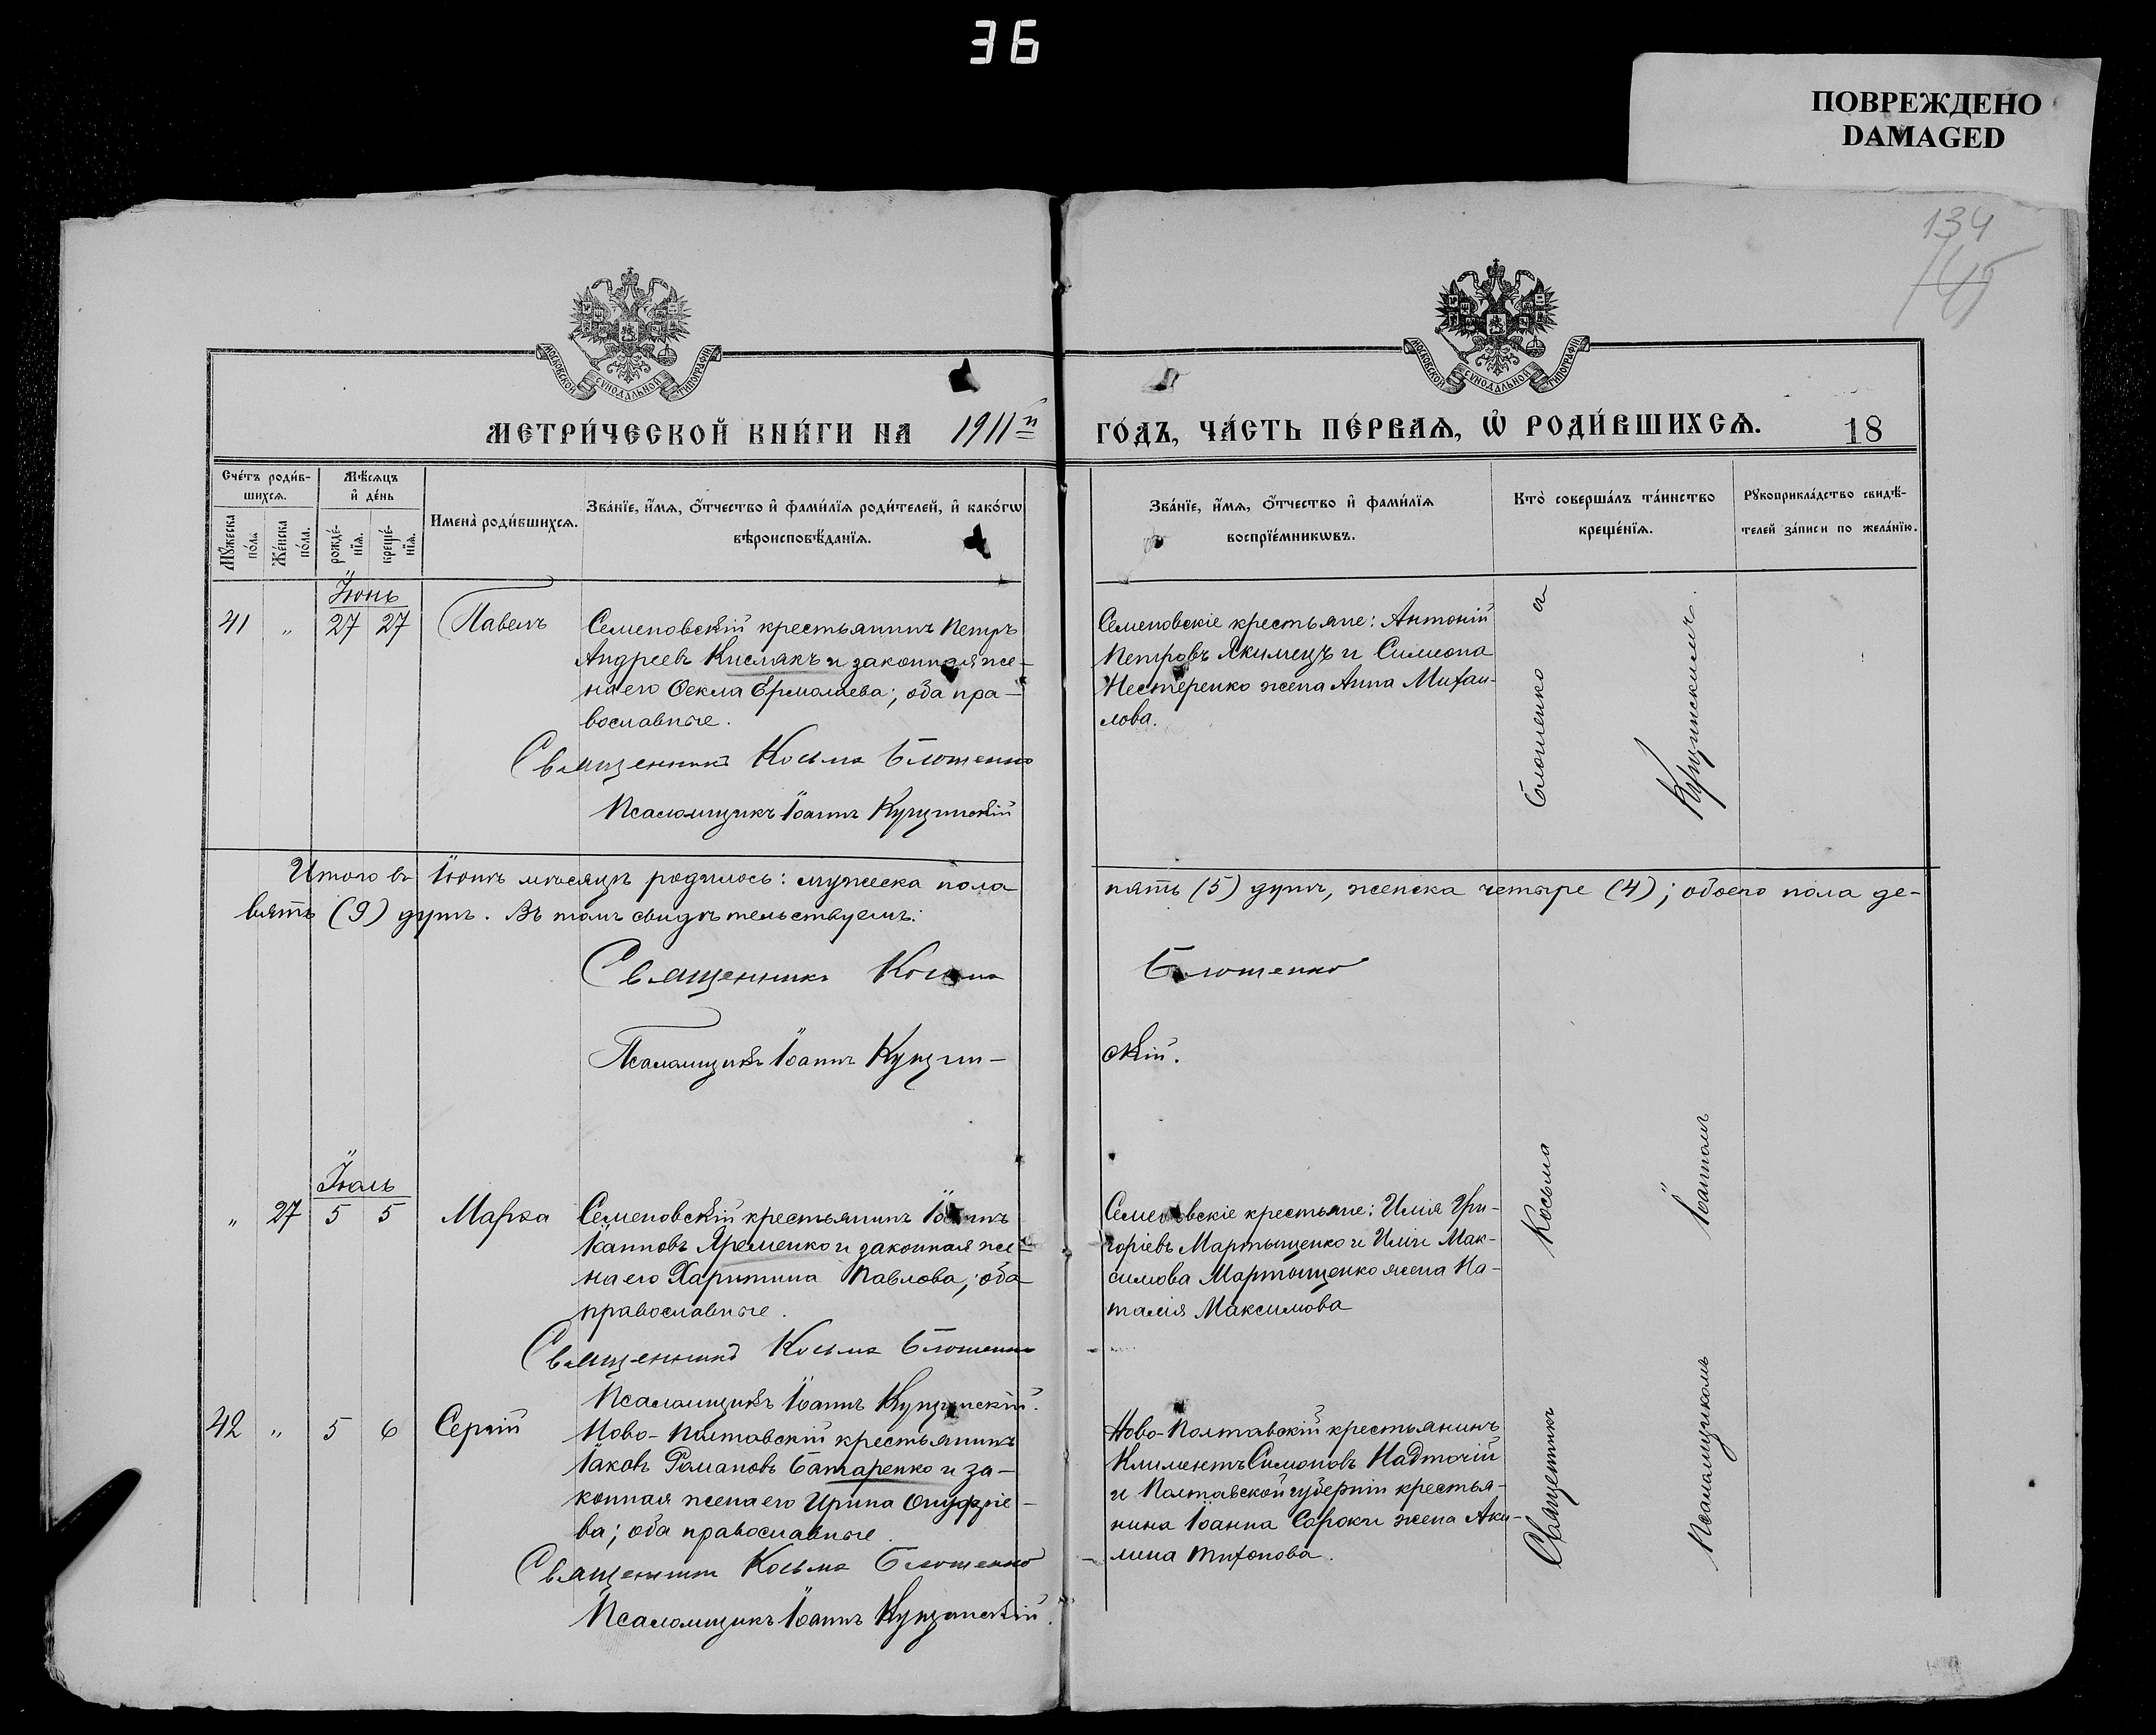 36
ПОВРЕЖДЕНО
DAMAGED
134
145
МОСКОВСКОЙ СѴНОДАЛЬНОЙ ТИПОГРАФІИ
МОСКОВСКОЙ СѴНОДАЛЬНОЙ ТИПОГРАФІИ
МЕТРИ́ЧЕСКОЙ КНИ́ГИ НА 1911й ГО́ДЪ, ЧА́СТЬ ПЕ́РВАѦ, Ѡ҆ РОДИ́ВШИХСѦ. 18
Сче́тъ роди́в-
шихсѧ.
Мѣ́сѧцъ
и҆ де́нь
Мꙋ́жеска
по́ла
Же́нска
по́ла.
рожде́-
нїѧ.
креще́-
нїѧ.
Имена̀ роди́вшихсѧ.
Зва́нїе, и҆́мѧ, ѻ҆́тчество и҆ фами́лїѧ роди́телей, и҆ како́гѡ
вѣроисповѣ́данїѧ.
Зва́нїе, и҆́мѧ, ѻ҆́тчество и҆ фами́лїѧ
воспрїе́мникѡвъ.
Кто̀ соверша́лъ та́инство
креще́нїѧ.
Рꙋкоприкла́дство свидѣ́-
телей за́писи по жела́нїю.
Іюнь
41 „ 27 27 Павелъ
Семеновскій крестьянинъ Петръ
Андреевъ Кислякъ и законная же-
на его Ѳекла Ермолаева; оба пра-
вославные.
Священникъ Косьма Блошенко
Псаломщикъ Іоаннъ Кущинскій
Семеновскіе крестьяне: Антоній
Петровъ Якимецъ и Симеона
Нестеренко жена Анна Михаи-
лова.
Итого въ Іюнѣ мѣсяцѣ родилось: мужеска пола пять (5) душъ, женска четыре (4); обоего пола де-
вять (9) душъ. Въ томъ свидѣтельствуемъ:
Священникъ Косьма Блошенко
Псаломщикъ Іоаннъ Кущин-
скій.
Іюль
„ 27 5 5 Марѳа
Семеновскій крестьянинъ Іоаннъ
Іоанновъ Яременко и законная же-
на его Харитина Павлова; оба
православные.
Священникъ Косьма Блошенко
Псаломщикъ Іоаннъ Кущинскій.
Семеновскіе крестьяне: Илія Гри-
горіевъ Мартыщенко и Иліи Мак-
симова Мартыщенко жена На-
талія Максимова
42 „ 5 6 Сергій
Ново-Полтавскій крестьянинъ
Іаковъ Романовъ Батаренко и за-
конная жена его Ирина Онуфріе-
ва; оба православные.
Священникъ Косьма Блошенко
Псаломщикъ Іоаннъ Кущинскій.
Ново-Полтавскій крестьянинъ
Климентъ Симоновъ Надточій
и Полтавской губерніи крестья-
нина Іоанна Сороки жена Аки-
лина Тихонова.
Священникъ Косьма Блошенко съ
Псаломщикомъ Іоанномъ Кущинскимъ.